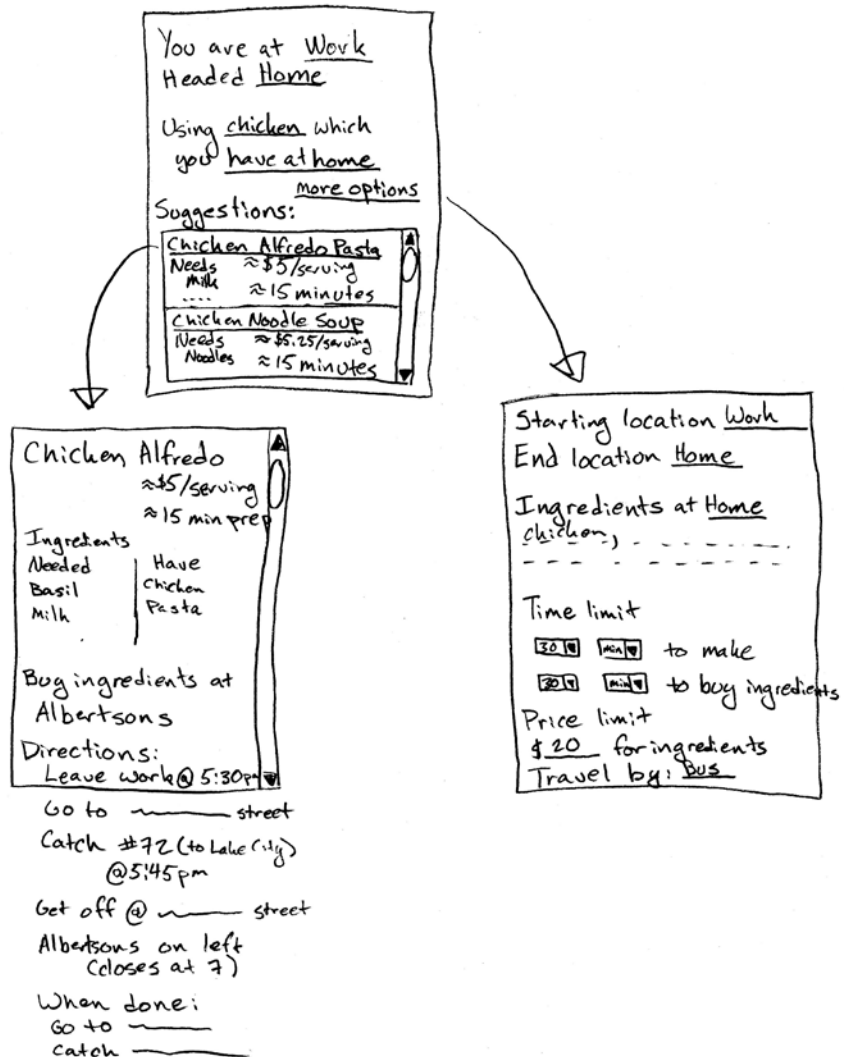 You are at Work
Headed Home
Using chicken which
you have at home
more options
Suggestions:
Chicken Alfredo Pasta
Needs ≈$5/serving
Milk
.... ≈15 minutes
Chicken Noodle Soup
Needs ≈$5.25/serving
Noodles ≈15 minutes
Chicken Alfredo
≈$5/serving
≈15 min prep
Ingredients
Needed Have
Basil Chicken
Milk Pasta
Buy ingredients at
Albertsons
Directions:
Leave work@ 5:30pm
Go to street
Catch #72 (to Lake City)
@5:45pm
Get off @ street
Albertsons on left
(closes at 7)
When done:
Go to
Catch
Starting location Work
End location Home
Ingredients at Home
chicken,
Time limit
30 min to make
30 min to buy ingredients
Price limit
$ 20 for ingredients
Travel by: Bus